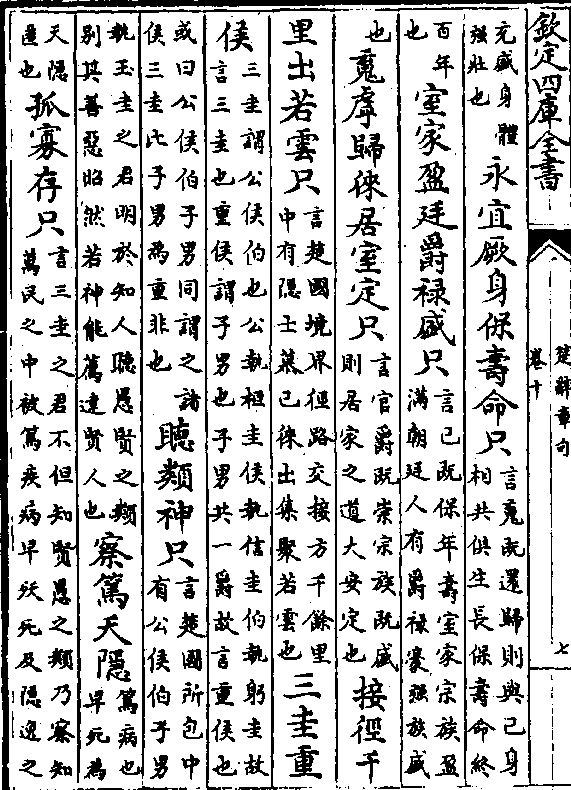 欽定四庫全書
楚辭章句
卷十
七
充盛身體
强壯也
永宜厥身保壽命只
言䰟既還歸則與己身
相共俱生長保壽命終
百年
也
室家盈廷爵禄盛只
言己既保年壽室家宗族盈
滿朝廷人有爵禄豪强族盛
也
䰟虖歸徠居室定只
言官爵既崇宗族既盛
則居家之道大安定也
接徑千
里出若雲只
言楚國境界徑路交接方千餘里
中有隠士慕己徠出集聚若雲也
三圭重
侯
三圭謂公侯伯也公執桓圭侯執信圭伯執躬圭故
言三圭也重侯謂子男也子男共一爵故言重侯也
或曰公侯伯子男同謂之諸
侯三圭比子男為重非也
聽類神只
言楚國所包中
有公侯伯子男
執玉圭之君明於知人聽愚賢之類
别其善惡昭然若神能薦達賢人也
察篤夭隠
篤病也
早死為
夭隠
匿也
孤寡存只
言三圭之君不但知賢愚之類乃察知
萬民之中被篤疾病早夭死及隠逸之